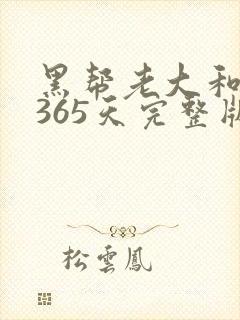 黑帮老大和
365天完整版
松雲鳳